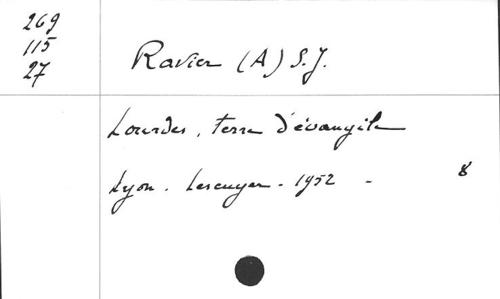 269
115
27
Ravier (A) S.J.
Lourdes, terre d'évangile
Lyon. Lescuyer. 1952 -
8